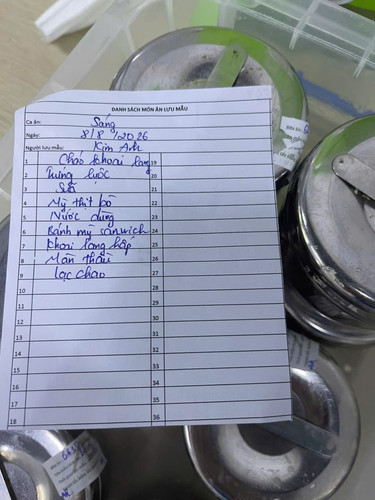 DANH SÁCH MÓN ĂN LƯU MẪU
Ca ăn: Sáng
Ngày: 8/8/2026
Người lưu mẫu: Kim Anh
1 Cháo khoai lang 19
2 Trứng luộc 20
3 Sữa 21
4 Mỳ thịt bò 22
5 Nước dùng 23
6 Bánh mỳ sanwich 24
7 Khoai lang hấp 25
8 Màn thầu 26
9 Lạc chao 27
10 28
11 29
12 30
13 31
14 32
15 33
16 34
17 35
18 36